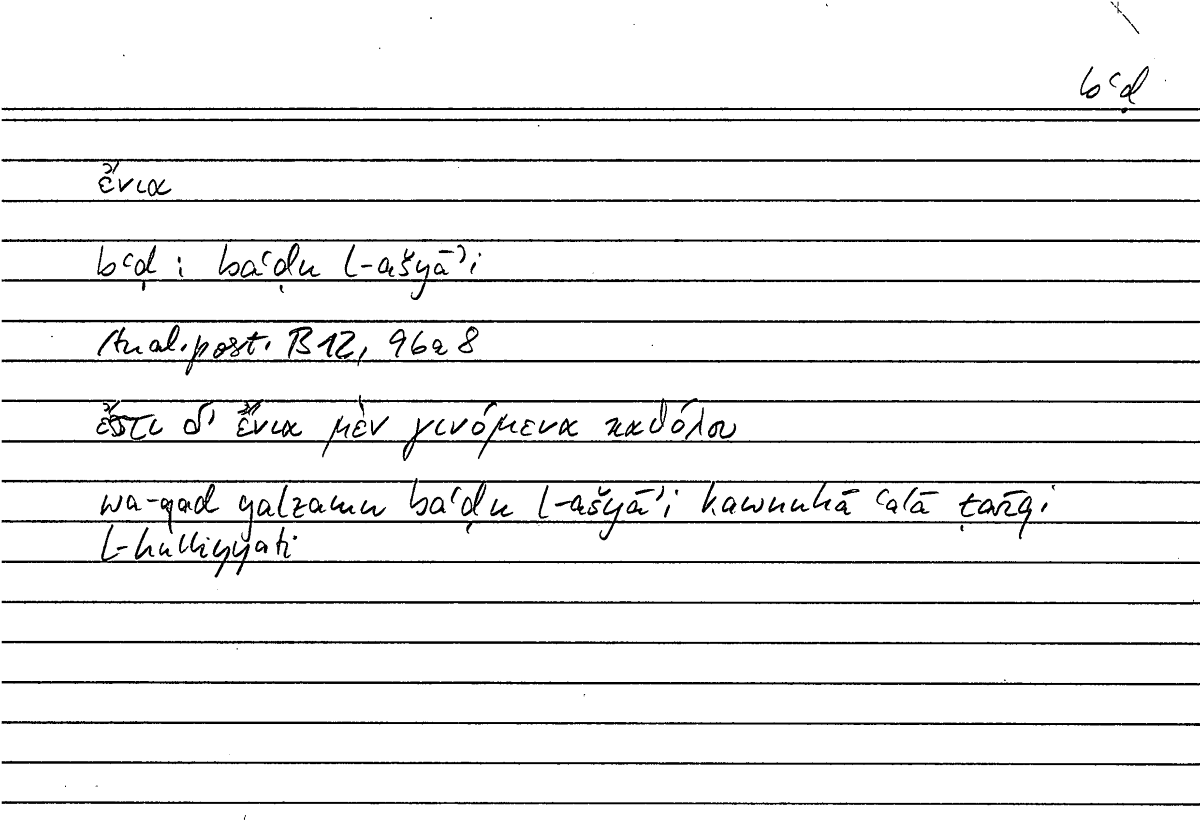 bʿḍ
ἔνια
bʿḍ : baʿḍu l-ašyāʾi
Anal. post. B 12, 96a8
ἔστι δ' ἔνια μὲν γινόμενα καθόλου
wa-qad yalzamu baʿḍu l-ašyāʾi kawnuhā ʿalā ṭarīqi
l-kulliyyati